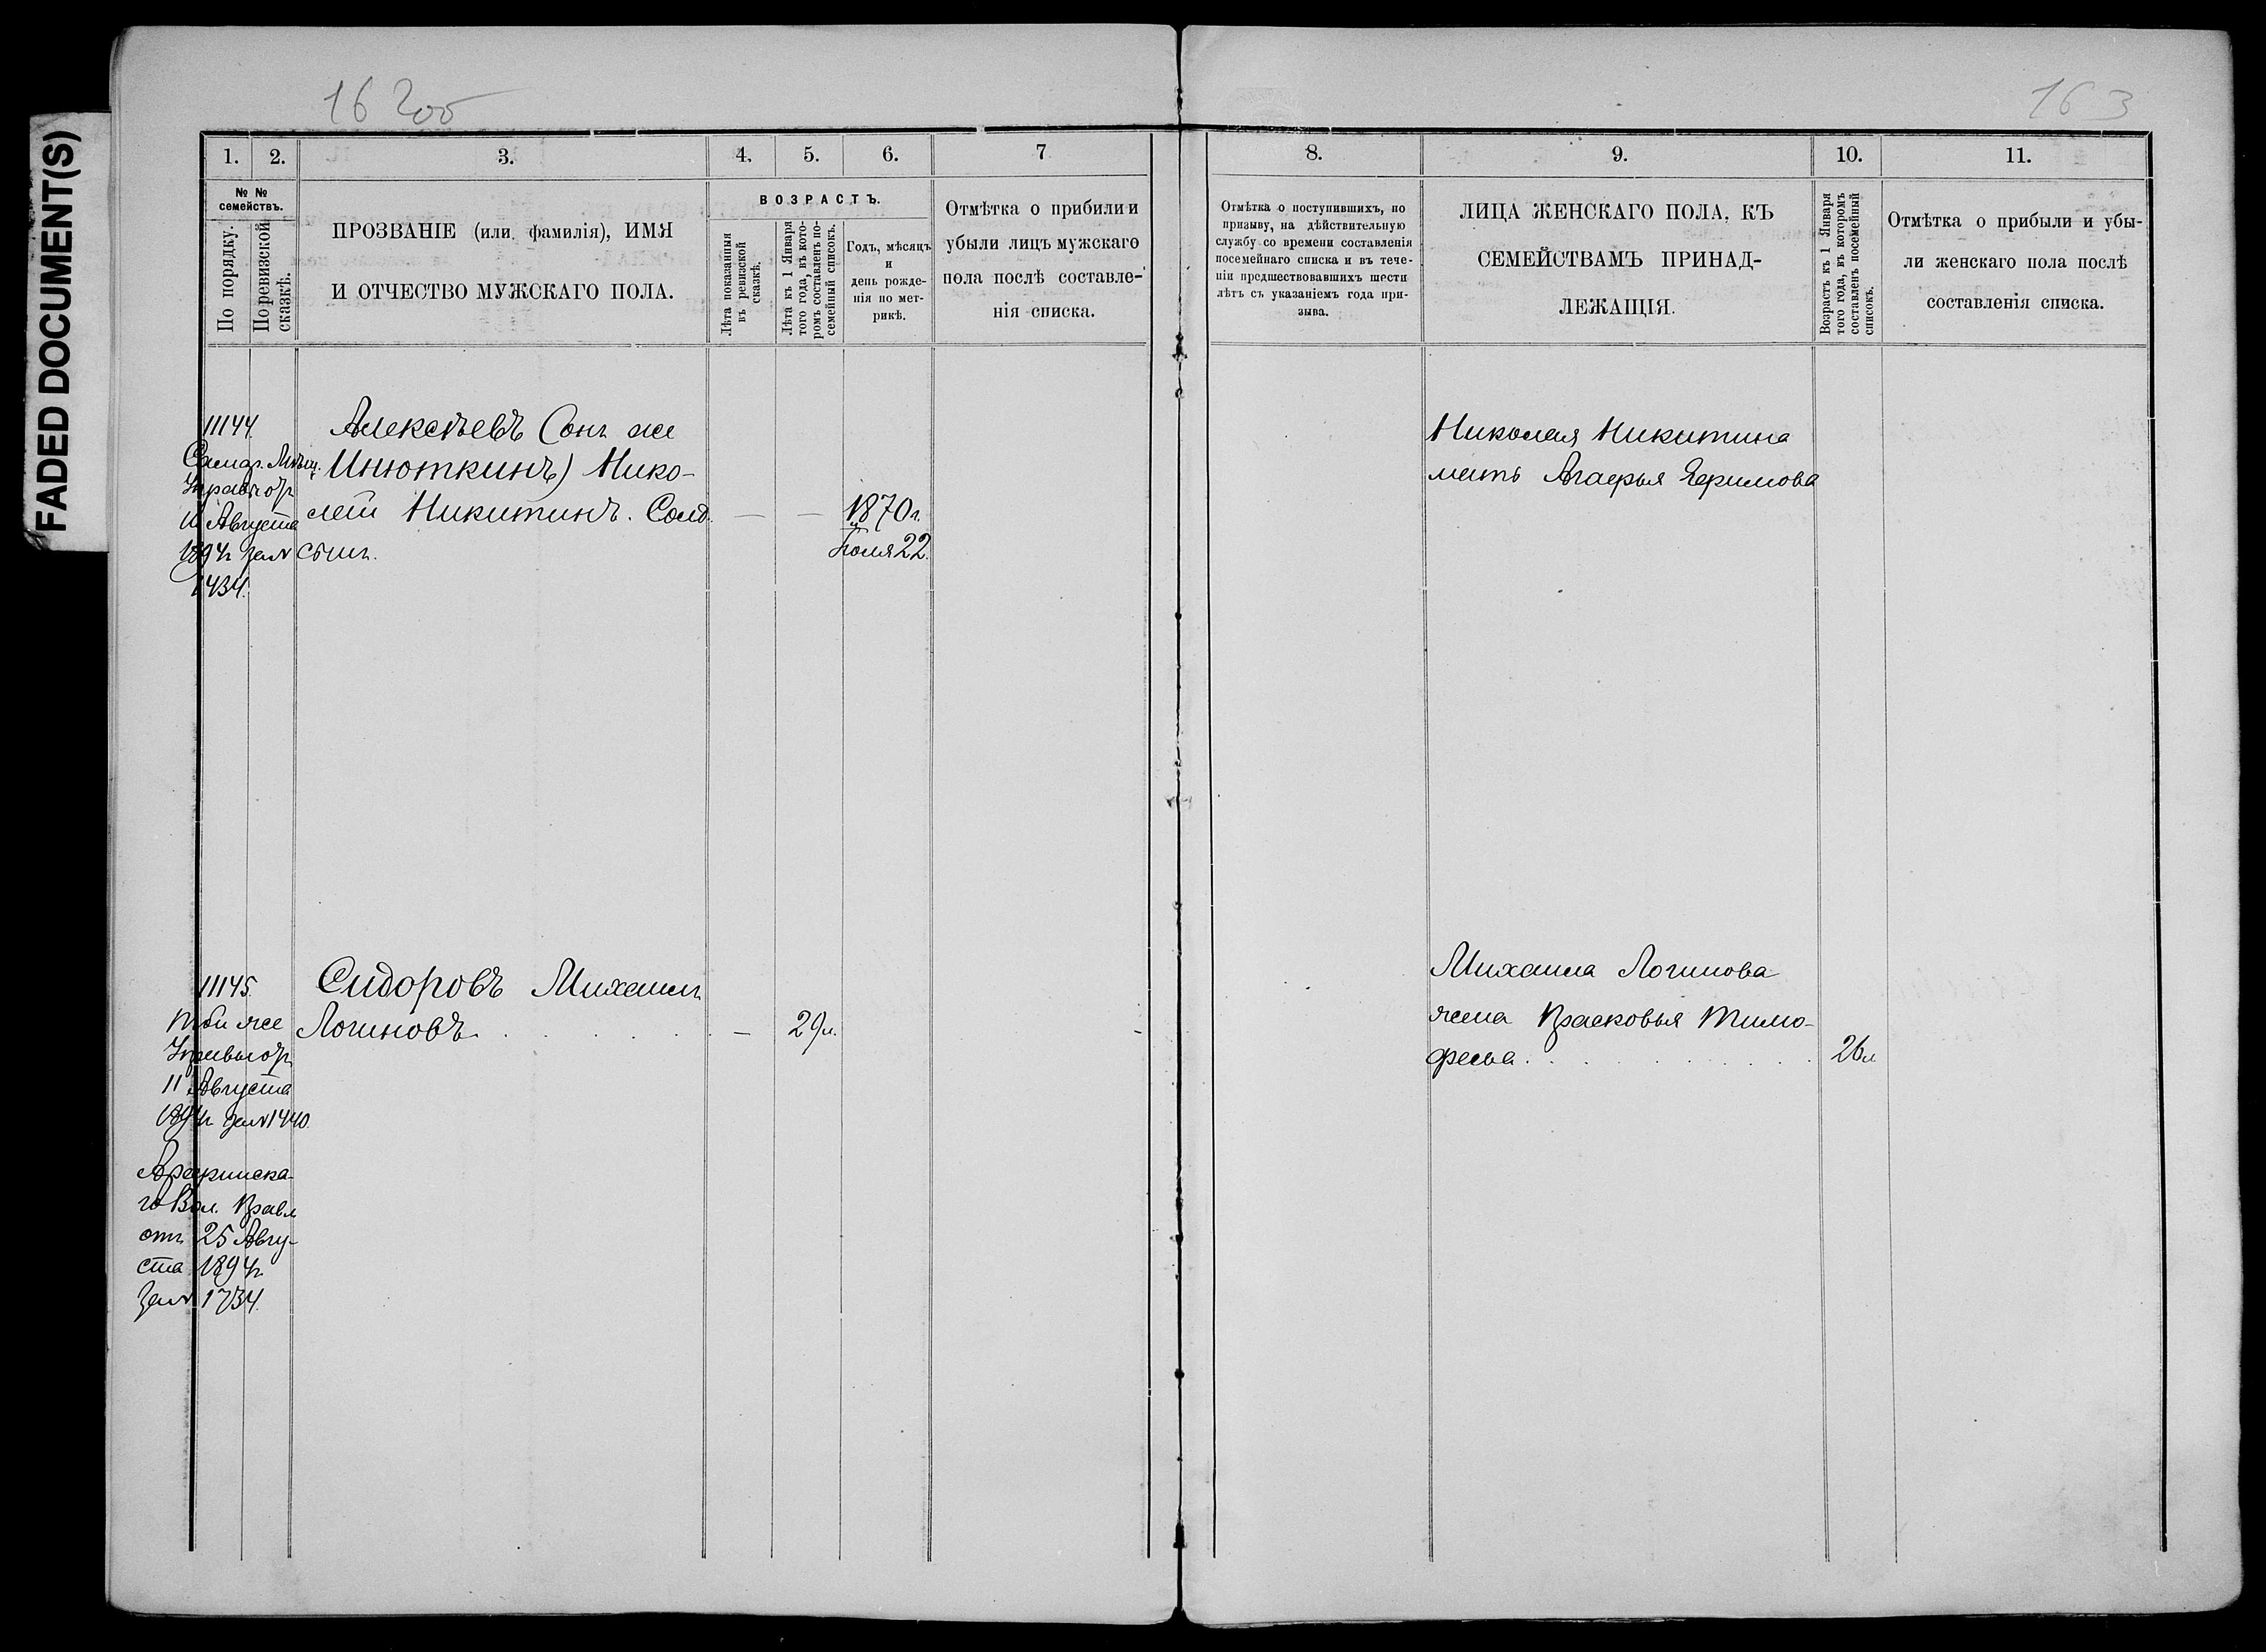 FADED DOCUMENT(S)
162об
163
1. 2. 3. 4. 5. 6. 7
№ № семействъ.
По порядку.
По ревизской сказкѣ.
ПРОЗВАНІЕ (или фамилія), ИМЯ
И ОТЧЕСТВО МУЖСКАГО ПОЛА.
ВОЗРАСТЪ.
Лѣта показанныя
въ ревизской
сказкѣ.
Лѣта къ 1 Января
того года, въ кото-
ромъ составленъ по-
семейный списокъ.
Годъ, мѣсяцъ
и
день рожде-
нія по мет-
рикѣ.
Отмѣтка о прибыли и
убыли лицъ мужскаго
пола послѣ составле-
нія списка.
11144.
Самар. Мѣщ.
Управы отъ
11 Августа
1894г за №
1434.
Алексѣевъ (онъ же
Инюткинъ) Нико-
лай Никитинъ. Солд.
сынъ.
— — 1870г.
Іюля 22.
11145.
Той же
Управы отъ
11 Августа
1894г за № 1440.
го Вол. Правл
отъ 25 Авгу-
ста 1894г
за № 1734.
Сидоровъ Михаилъ
Логиновъ. — 29л.
8. 9. 10. 11.
Отмѣтка о поступившихъ, по
призыву, на дѣйствительную
службу со времени составленія
посемейнаго списка и въ тече-
ніи предшествовавшихъ шести
лѣтъ съ указаніемъ года при-
зыва.
ЛИЦА ЖЕНСКАГО ПОЛА, КЪ
СЕМЕЙСТВАМЪ ПРИНАД-
ЛЕЖАЩІЯ.
Возрастъ къ 1 Января
того года, въ которомъ
составленъ посемейный
списокъ.
Отмѣтка о прибыли и убы-
ли женскаго пола послѣ
составленія списка.
Николая Никитина
мать Агафья Ефимова
Михаила Логинова
жена Прасковья Тимо-
феева. 26л